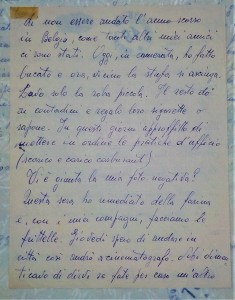 di non essere andato l'anno scorso
in Belgio, come tanti altri miei amici
ci sono stati. Oggi, in camerata, ho fatto
bucato e ora, vicino la stufa si asciuga.
Lavo solo la roba piccola. Il resto do'
ai contadini e regalo loro sigarette o
sapone. In questi giorni approfitto di
mettere in ordine le pratiche d'ufficio
(scarico e carico carburanti)
Vi è giunta la mia foto negativa?
Questa sera ho rimediato della farina
e, con i miei compagni, facciamo le
frittelle. Giovedì spero di andare in
città così andrò al cinematografo. Mi dimen
ticavo di dirvi se fate per caso un'altra